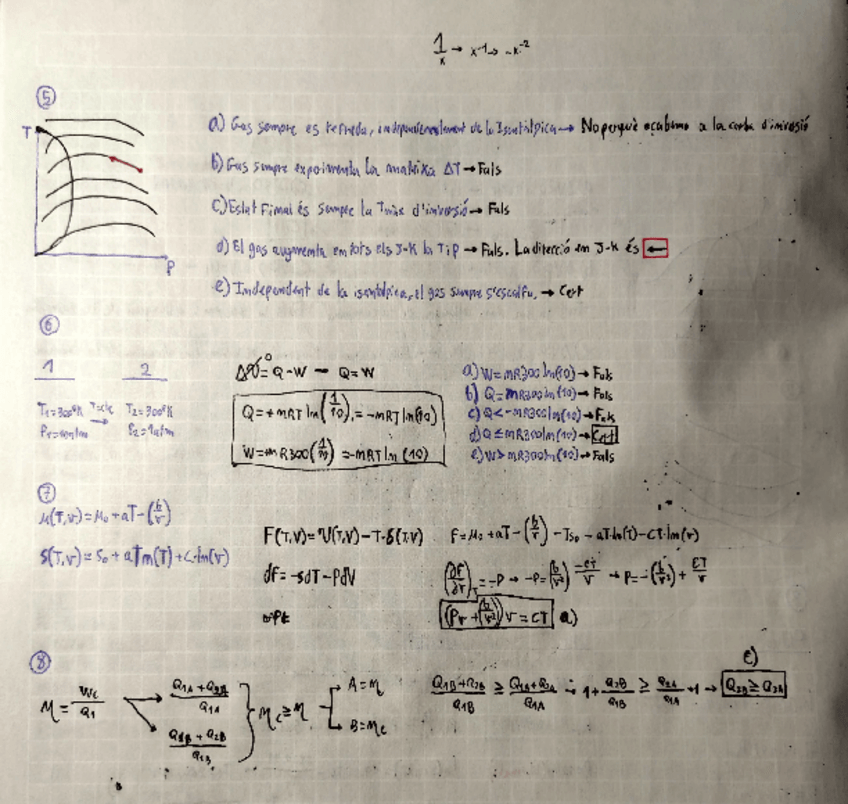 1/x → x⁻¹ → -x⁻²
⑤
T
P
a) Gas sempre es refreda, independentment de la Isentàlpica → No perquè acabamo a la corba d'inversió
b) Gas sempre experimenta la mateixa ΔT → Fals
c) Estat Final és sempre la Tmàx d'inversió → Fals
d) El gas augmenta en tots els J-K la T i P → Fals. La direcció en J-K és ←
e) Independent de la isentàlpica, el gas sempre s'escalfa, → Cert
⑥
1 2
T₁=300°K T=cte → T₂=300°K
P₁=10atm P₂=1atm
ΔU=⁰ Q-W → Q=W
Q=+mRT ln(1/10) = -mRT ln(10)
W=+mR300(1/10) = -mRT ln(10)
a) W=mR300ln(10) → Fals
b) Q=mR300ln(10) → Fals
c) Q<-mR300ln(10) → Fals
d) Q≤mR300ln(10) → Cert
e) W>mR300ln(10) → Fals
⑦
u(T,v)=u₀+aT-(b/v)
s(T,v)=s₀+aTln(T)+c·ln(v)
F(T,V)=U(T,V)-T·S(T,V) F=u₀+aT-(b/v)-Ts₀-aT·ln(T)-CT·ln(v)
dF=-sdT-PdV (∂F/∂T)=-P → -P=(b/v²)-CT/v → P=-(b/v²)+CT/v
(Pv+(b/v²))v=CT a)
⑧
e)
M=Wc/Q1 → Q1A+Q2A/Q1A
Q1B+Q2B/Q1B
Mc≥M
A=M
B=Mc
Q1B+Q2B/Q1B ≥ Q1A+Q2A/Q1A ∴ 1+Q2B/Q1B ≥ Q2A/Q1A+1 → Q2B≥Q2A